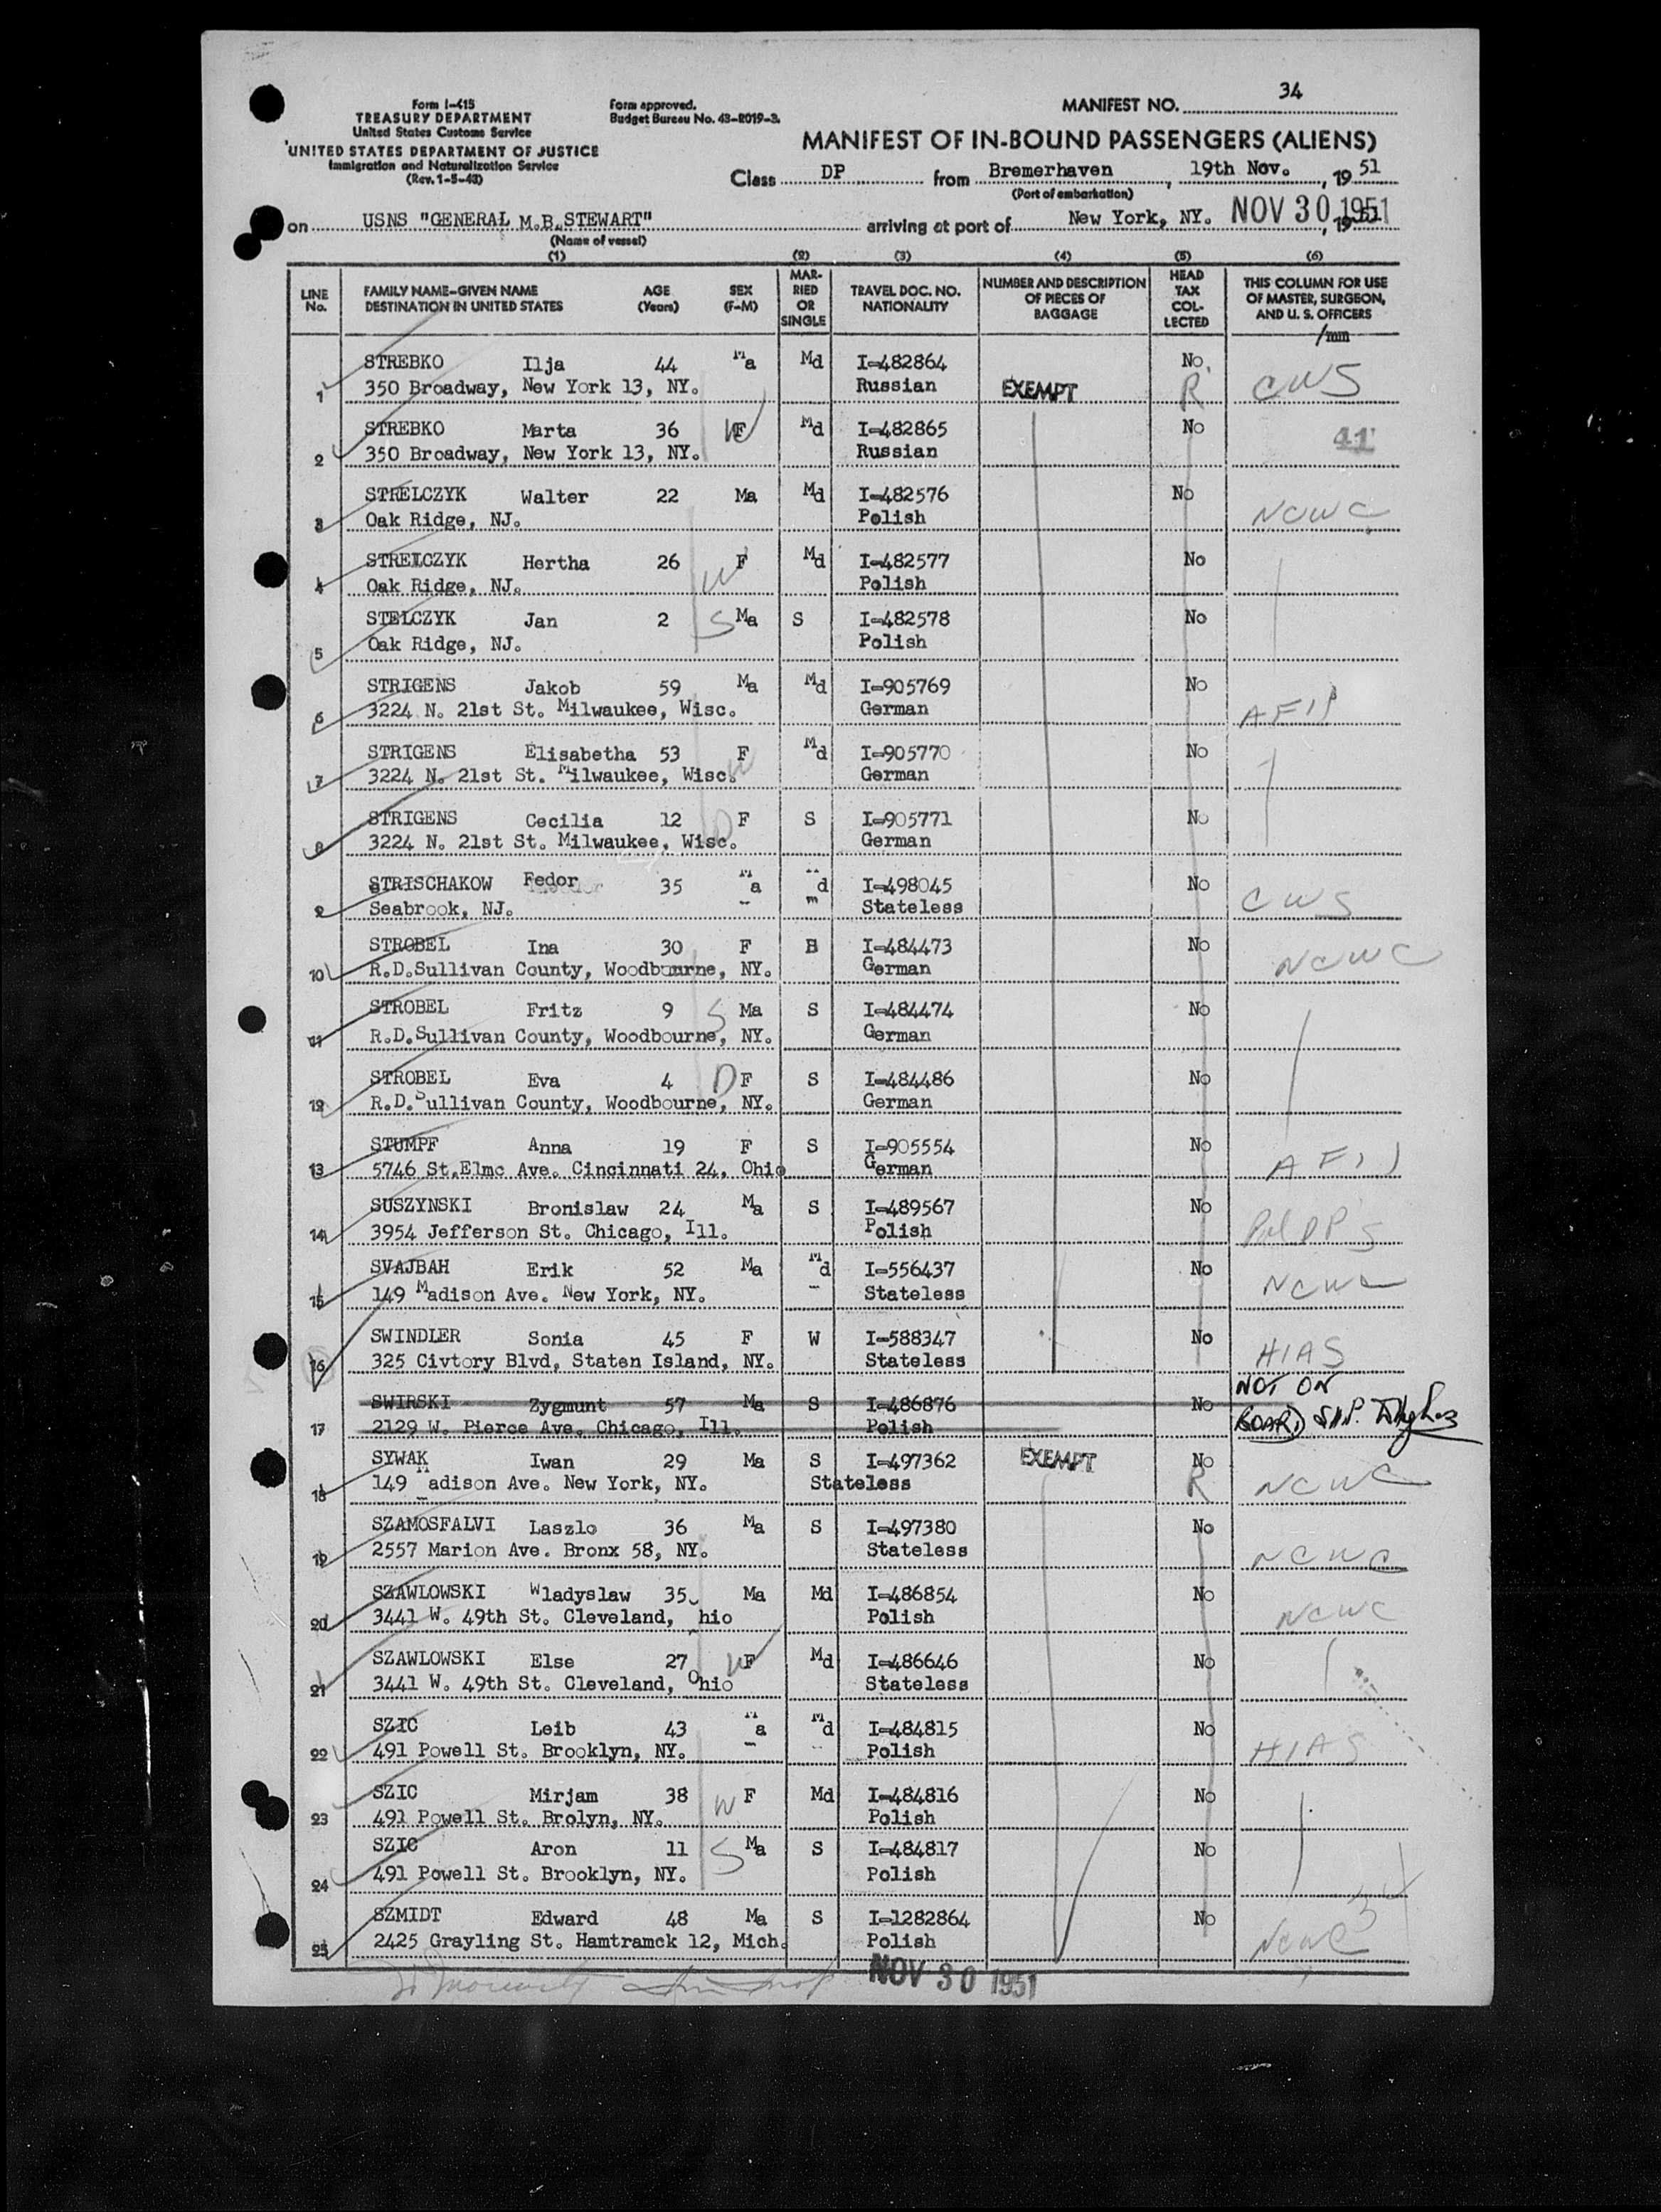 34
Form I-415
TREASURY DEPARTMENT
United States Customs Service
UNITED STATES DEPARTMENT OF JUSTICE
Immigration and Naturalization Service
(Rev. 1-5-43)
Form approved.
Budget Bureau No. 43-R019-3.
MANIFEST NO.
MANIFEST OF IN-BOUND PASSENGERS (ALIENS)
Class DP from Bremerhaven, 19th Nov., 1951
(Port of embarkation)
on USNS "GENERAL M.B.STEWART" arriving at port of New York, NY. NOV 30 1951, 1951
(Name of vessel)
(1) (2) (3) (4) (5) (6)
LINE No. FAMILY NAME-GIVEN NAME DESTINATION IN UNITED STATES AGE (Years) SEX (F-M) MARRIED OR SINGLE TRAVEL DOC. NO. NATIONALITY NUMBER AND DESCRIPTION OF PIECES OF BAGGAGE HEAD TAX COLLECTED THIS COLUMN FOR USE OF MASTER, SURGEON, AND U. S. OFFICERS
/mm
STREBKO Ilja 44 Ma Md I-482864 No.
1 350 Broadway, New York 13, NY. Russian EXEMPT R CWS
STREBKO Marta 36 W F Md I-482865 No 41
2 350 Broadway, New York 13, NY. Russian
STRELCZYK Walter 22 Ma Md I-482576 No
3 Oak Ridge, NJ. Polish NCWC
STRELCZYK Hertha 26 F Md I-482577 No
4 Oak Ridge, NJ. W Polish
STELCZYK Jan 2 S Ma S I-482578 No
5 Oak Ridge, NJ. Polish
STRIGENS Jakob 59 Ma Md I-905769 No
6 3224 N. 21st St. Milwaukee, Wisc. German
STRIGENS Elisabetha 53 F Md I-905770 No
7 3224 N. 21st St. Milwaukee, Wisc. W German
STRIGENS Cecilia 12 D F S I-905771 No
8 3224 N. 21st St. Milwaukee, Wisc. German
STRISCHAKOW Fedor 35 Ma Md I-498045 No
9 Seabrook, NJ. Stateless CWS
STROBEL Ina 30 F I-484473 No
10 R.D.Sullivan County, Woodbourne, NY. German NCWC
STROBEL Fritz 9 S Ma S I-484474 No
11 R.D.Sullivan County, Woodbourne, NY. German
STROBEL Eva 4 D F S I-484486 No
12 R.D.Sullivan County, Woodbourne, NY. German
STUMPF Anna 19 F S I-905554 No
13 5746 St.Elmo Ave. Cincinnati 24, Ohio German
SUSZYNSKI Bronislaw 24 Ma S I-489567 No
14 3954 Jefferson St. Chicago, Ill. Polish
SVAJBAH Erik 52 Ma Md I-556437 No
15 149 Madison Ave. New York, NY. Stateless NCWC
SWINDLER Sonia 45 F W I-588347 No
16 325 Civtory Blvd, Staten Island, NY. Stateless HIAS
SWIRSKI Zygmunt 57 Ma S I-486876 No NOT ON
17 2129 W. Pierce Ave. Chicago, Ill. Polish BOARD
SYWAK Iwan 29 Ma S I-497362 EXEMPT No
18 149 Madison Ave. New York, NY. Stateless R NCWC
SZAMOSFALVI Laszlo 36 Ma S I-497380 No
19 2557 Marion Ave. Bronx 58, NY. Stateless NCWC
SZAWLOWSKI Wladyslaw 35 Ma Md I-486854 No
20 3441 W. 49th St. Cleveland, hio Polish NCWC
SZAWLOWSKI Else 27 W F Md I-486646 No
21 3441 W. 49th St. Cleveland, Ohio Stateless
SZIC Leib 43 Ma Md I-484815 No
22 491 Powell St. Brooklyn, NY. Polish HIAS
SZIC Mirjam 38 W F Md I-484816 No
23 491 Powell St. Brolyn, NY. Polish
SZIC Aron 11 S Ma S I-484817 No
24 491 Powell St. Brooklyn, NY. Polish
SZMIDT Edward 48 Ma S I-1282864 No
25 2425 Grayling St. Hamtramck 12, Mich. Polish NCWC
NOV 30 1951